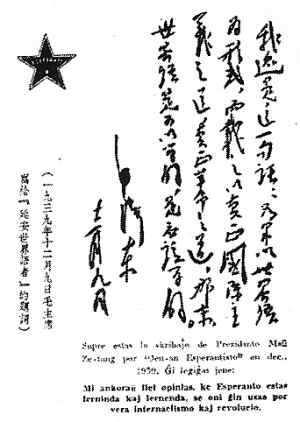 我還是這一句話:如果以世界語
為形式,而載之以真正國際主
義之道,真正革命之道,那末,
世界語是可以學的,是應該學的。
毛澤東
十二月九日
(一九三九年十二月九日毛主席
寫給『延安世界語者』的題詞)
Supre estas la skribaĵo de Prezidanto Maŭ
Ze-tung por "Jen-an Esperantisto" en dec.,
1939. Ĝi legiĝas jene:
Mi ankoraŭ tiel opinias, ke Esperanto estas
lerninda kaj lernenda, se oni ĝin uzas
por vera internaciismo kaj revolucio.